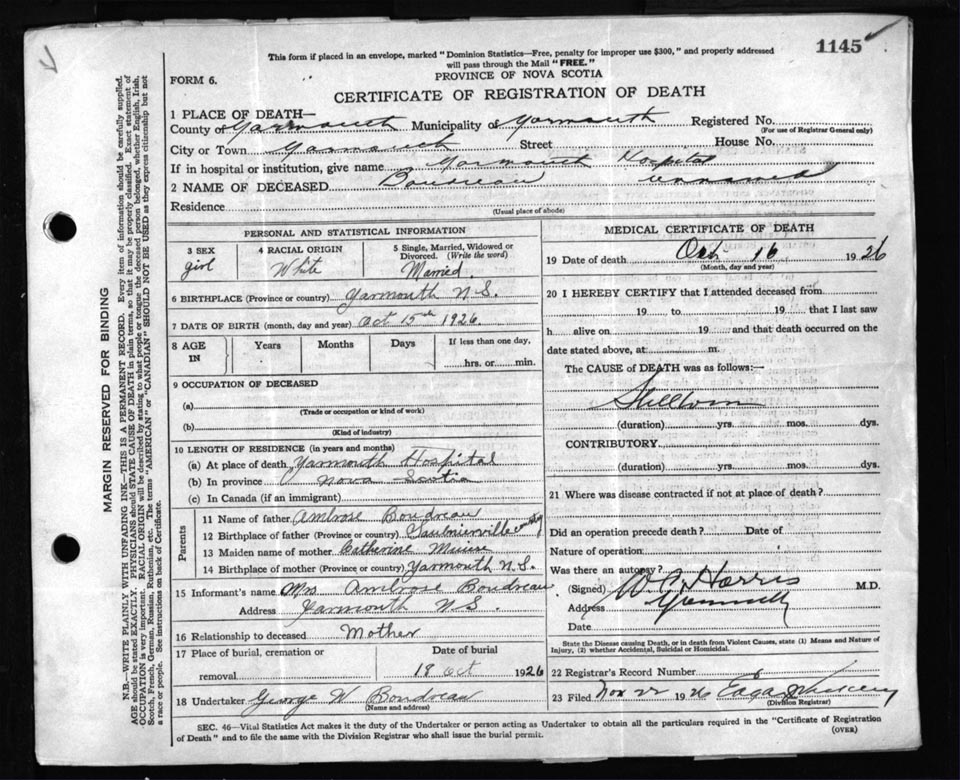 1145
This form if placed in an envelope, marked "Dominion Statistics—Free, penalty for improper use $300," and properly addressed
will pass through the Mail "FREE."
FORM 6.
PROVINCE OF NOVA SCOTIA
CERTIFICATE OF REGISTRATION OF DEATH
1 PLACE OF DEATH—
County of Yarmouth Municipality of Yarmouth Registered No.
(For use of Registrar General only)
City or Town Yarmouth Street House No.
If in hospital or institution, give name Yarmouth Hospital
2 NAME OF DECEASED Boudreau unnamed
Residence
(Usual place of abode)
PERSONAL AND STATISTICAL INFORMATION
3 SEX 4 RACIAL ORIGIN 5 Single, Married, Widowed or
Divorced. (Write the word)
girl White Married.
6 BIRTHPLACE (Province or country) Yarmouth N.S.
7 DATE OF BIRTH (month, day and year) Oct 15th 1926.
8 AGE
IN Years Months Days If less than one day,
hrs. or min.
9 OCCUPATION OF DECEASED
(a)
(Trade or occupation or kind of work)
(b)
(Kind of industry)
10 LENGTH OF RESIDENCE (in years and months)
(a) At place of death Yarmouth Hospital
(b) In province Nova Scotia
(c) In Canada (if an immigrant)
Parents
11 Name of father Ambrose Boudreau
12 Birthplace of father (Province or country) Saulnierville
13 Maiden name of mother Catherine Muise
14 Birthplace of mother (Province or country) Yarmouth N.S.
15 Informant's name Mrs Ambrose Boudreau
Address Yarmouth N.S.
16 Relationship to deceased Mother
17 Place of burial, cremation or Date of burial
removal 18 Oct 1926
18 Undertaker George W Boudreau
(Name and address)
MEDICAL CERTIFICATE OF DEATH
19 Date of death Oct. 16 1926
(Month, day and year)
20 I HEREBY CERTIFY that I attended deceased from
19 to 19 that I last saw
h alive on 19 and that death occurred on the
date stated above, at m.
The CAUSE of DEATH was as follows:—
Stillborn
(duration) yrs. mos. dys.
CONTRIBUTORY
(duration) yrs. mos. dys.
21 Where was disease contracted if not at place of death?
Did an operation precede death? Date of
Nature of operation
Was there an autopsy?
(Signed) Harris M.D.
Address Yarmouth
Date
State the Disease causing Death, or in death from Violent Causes, state (1) Means and Nature of
Injury, (2) whether Accidental, Suicidal or Homicidal.
22 Registrar's Record Number
23 Filed Nov 22 1926
(Division Registrar)
SEC. 46—Vital Statistics Act makes it the duty of the Undertaker or person acting as Undertaker to obtain all the particulars required in the "Certificate of Registration
of Death" and to file the same with the Division Registrar who shall issue the burial permit.
(OVER)
MARGIN RESERVED FOR BINDING
N.B.—WRITE PLAINLY WITH UNFADING INK—THIS IS A PERMANENT RECORD. Every item of information should be carefully supplied.
AGE should be stated EXACTLY. PHYSICIANS should STATE CAUSE OF DEATH in plain terms, so that it may be properly classified. Exact statement of
OCCUPATION is very important. RACIAL ORIGIN will be described by stating to what people or tongue the deceased person belonged, whether English, Irish,
Scotch, French, German, Russian, Ruthenian, etc. The terms "AMERICAN" or "CANADIAN" SHOULD NOT BE USED as they express citizenship but not
a race or people. See instructions on back of Certificate.